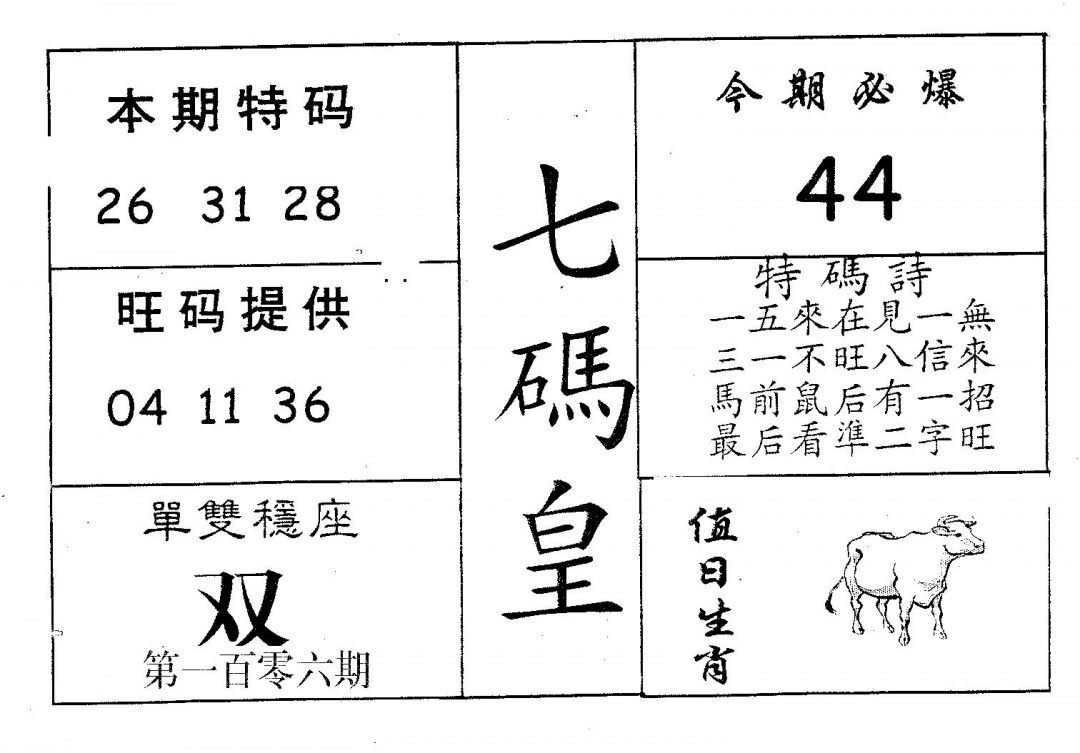 本期特码
26 31 28
旺码提供
04 11 36
單雙穩座
双
第一百零六期
七碼皇
今期必爆
44
特碼詩
一五來在見一無
三一不旺八信來
馬前鼠后有一招
最后看準二字旺
值日生肖